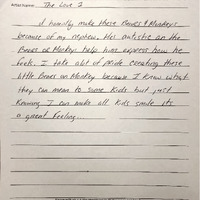 The Love 2
I humbly make these Bears & Monkeys
because of my nephew. Hes autistic an the
Bears or Monkey help him express how he
feels. I take alot of pride cerating these
little Bears an Monkey because I know what
they can mean to some kids but just
knowing I can make all kids smile its
a great feeling.